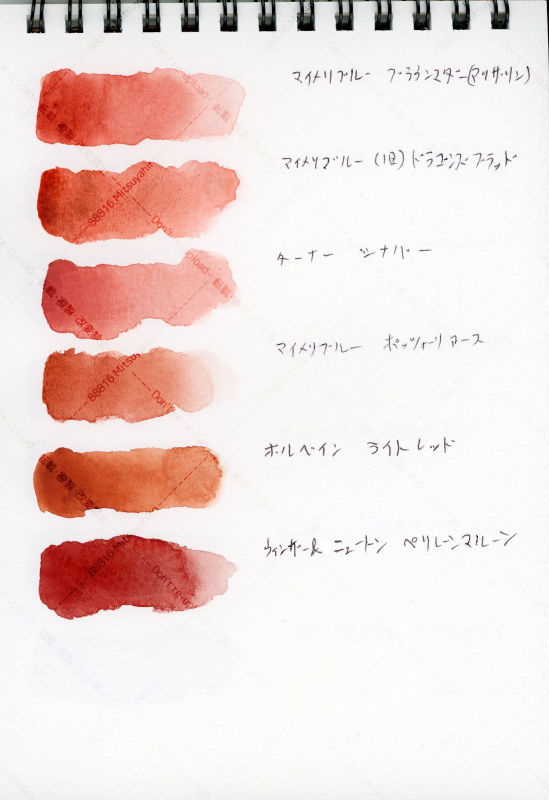 マイメリブルー ブラウンマダー(アリザリン)
マイメリブルー (旧) ドラゴンズブラッド
ターナー シナバー
マイメリブルー ポッツォーリアース
ホルベイン ライトレッド
ウィンザー& ニュートン ペリレーンマルーン
88816 Mitsuyahi
Don't re-upload 転載・複製・改変禁